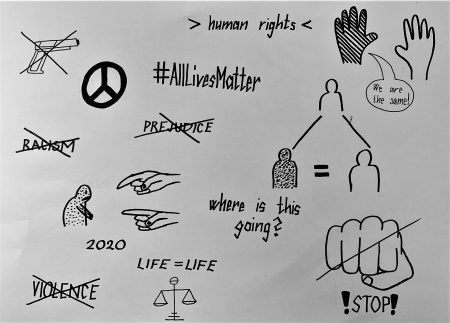 > human rights <
#AllLivesMatter
We are
the same!
PREJUDICE
RACISM
=
where is this
going?
2020
LIFE = LIFE
VIOLENCE
!STOP!